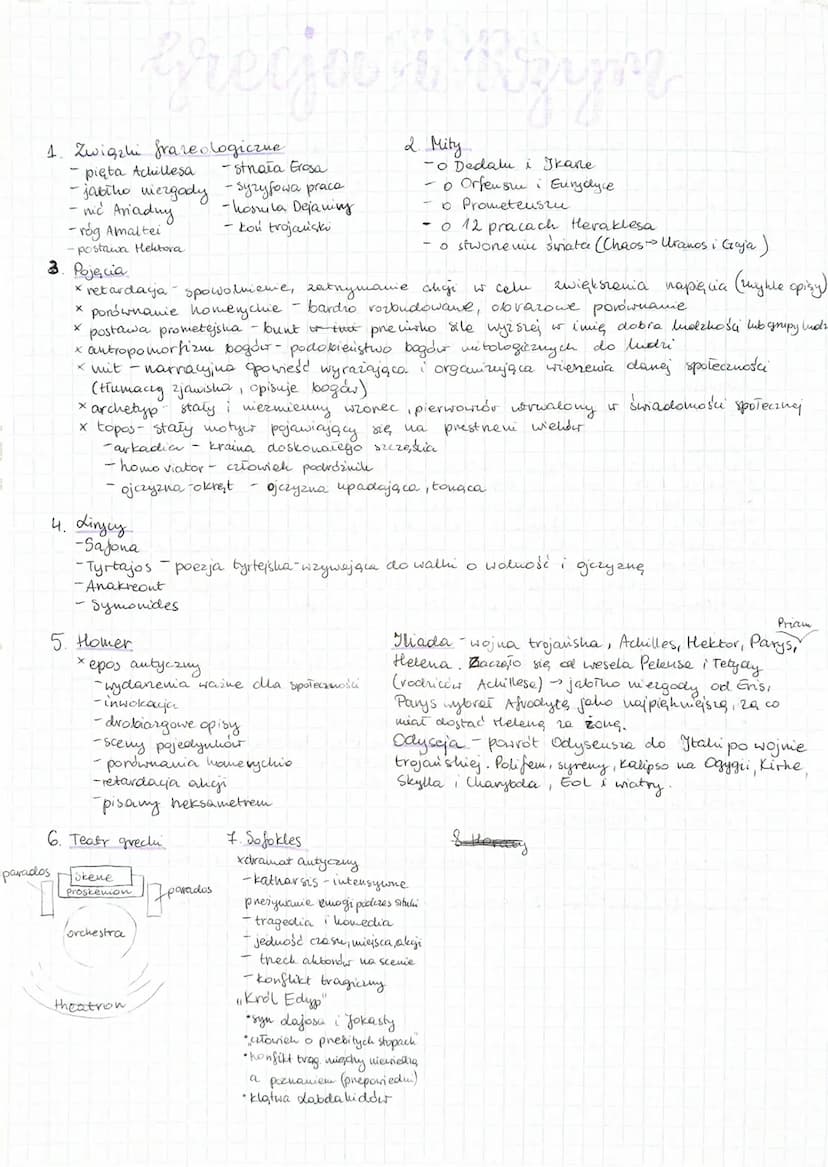 Grecja i Rzym
1. Związki frazeologiczne
- pięta Achillesa
- jabłko niezgody
- nić Ariadny
- róg Amaltei
- postawa Hektora
- strzała Erosa
- syzyfowa praca
- koszula Dejaniry
- koń trojański
2. Mity
- o Dedalu i Ikarze
- o Orfeuszu i Eurydyce
- o Prometeuszu
- o 12 pracach Heraklesa
- o stworzeniu świata (Chaos → Uranos i Gaja)
3. Pojęcia
× retardacja - spowolnienie, zatrzymanie akcji w celu zwiększenia napięcia (zwykle opisy)
× porównanie homeryckie - bardzo rozbudowane, obrazowe porównanie
× postawa prometejska - bunt przeciwko sile wyższej w imię dobra ludzkości lub grupy ludzi
× antropomorfizm bogów - podobieństwo bogów mitologicznych do ludzi
× mit - narracyjna opowieść wyrażająca i organizująca wierzenia danej społeczności
(tłumaczą zjawiska, opisuje bogów)
× archetyp - stały i niezmienny wzorzec, pierwowzór utrwalony w świadomości społecznej
× topos - stały motyw pojawiający się na przestrzeni wieków
- arkadia - kraina doskonałego szczęścia
- homo viator - człowiek podróżnik
- ojczyzna-okręt - ojczyzna upadająca, tonąca
4. Lirycy
- Safona
- Tyrtajos - poezja tyrtejska - wzywająca do walki o wolność i ojczyznę
- Anakreont
- Symonides
5. Homer
× epos antyczny
- wydarzenia ważne dla społeczności
- inwokacja
- drobiazgowe opisy
- sceny pojedynków
- porównania homeryckie
- retardacja akcji
- pisany heksametrem
Priam
Iliada - wojna trojańska, Achilles, Hektor, Parys,
Helena. Zaczęło się od wesela Peleusa i Tetydy
(rodziców Achillesa) → jabłko niezgody od Eris,
Parys wybrał Afrodytę jako najpiękniejszą, za co
miał dostać Helenę za żonę.
Odyseja - powrót Odyseusza do Itaki po wojnie
trojańskiej. Polifem, syreny, Kalipso na Ogygii, Kirke,
Skylla i Charybda, Eol i wiatry.
6. Teatr grecki
parados
skene
proskenion
parados
orchestra
theatron
7. Sofokles
× dramat antyczny
- katharsis - intensywne
przeżywanie emocji podczas sztuki
- tragedia i komedia
- jedność czasu, miejsca, akcji
- trzech aktorów na scenie
- konflikt tragiczny
„Król Edyp"
• syn Lajosa i Jokasty
• "człowiek o przebitych stopach"
• konflikt trag. między niewiedzą
a poznaniem (przepowiedni)
• klątwa Labdakidów
8. Horacy